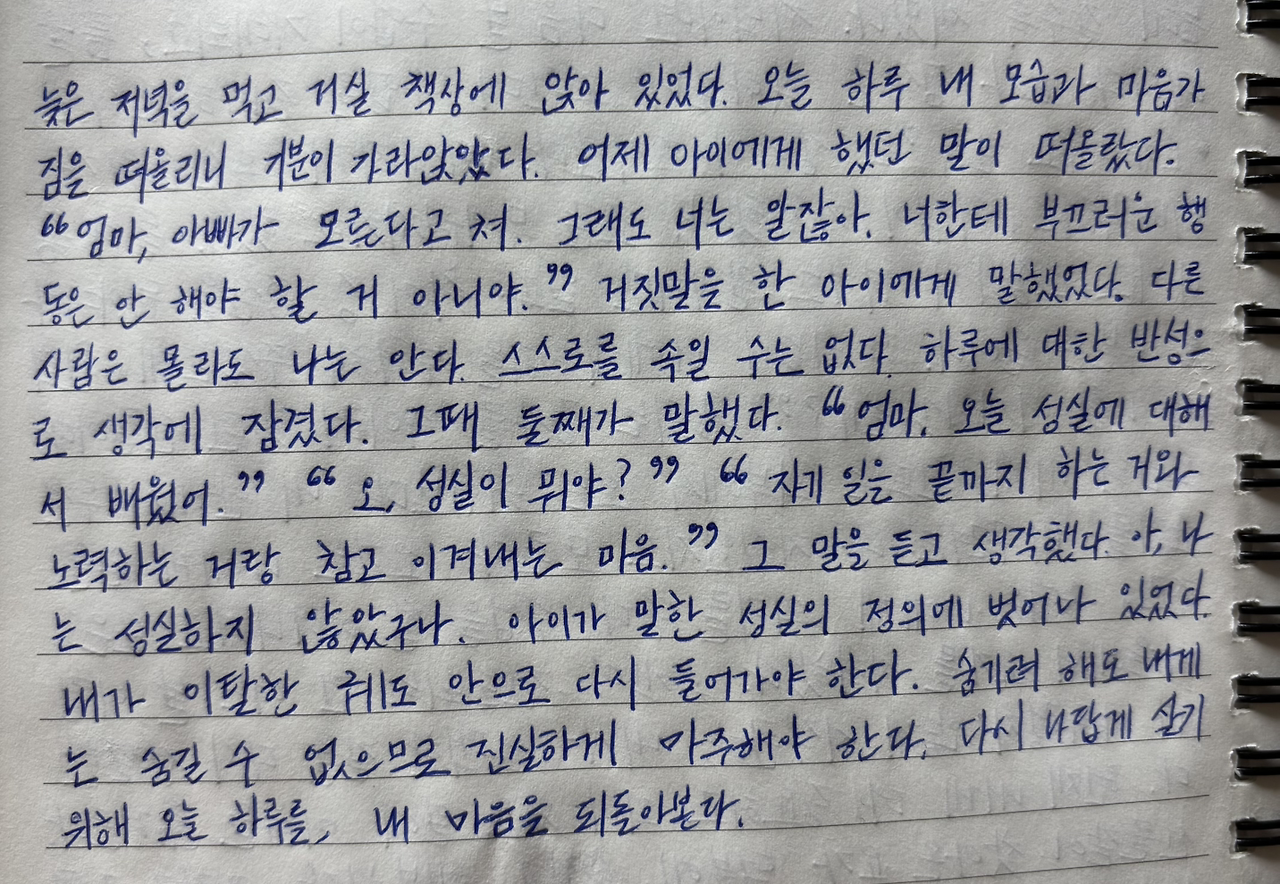 늦은 저녁을 먹고 거실 책상에 앉아 있었다. 오늘 하루 내 모습과 마음가
짐을 떠올리니 기분이 가라앉았다. 어제 아이에게 했던 말이 떠올랐다.
“엄마, 아빠가 모른다고 쳐. 그래도 너는 알잖아. 너한테 부끄러운 행
동은 안 해야 할 거 아니야.” 거짓말을 한 아이에게 말했었다. 다른
사람은 몰라도 나는 안다. 스스로를 속일 수는 없다. 하루에 대한 반성으
로 생각에 잠겼다. 그때 둘째가 말했다. “엄마, 오늘 성실에 대해
서 배웠어.” “오, 성실이 뭐야?” “자기 일을 끝까지 하는 거와
노력하는 거랑 참고 이겨내는 마음.” 그 말을 듣고 생각했다. 아, 나
는 성실하지 않았구나. 아이가 말한 성실의 정의에 벗어나 있었다.
내가 이탈한 궤도 안으로 다시 들어가야 한다. 숨기려 해도 내게
는 숨길 수 없으므로 진실하게 마주해야 한다. 다시 나답게 살기
위해 오늘 하루를, 내 마음을 되돌아본다.